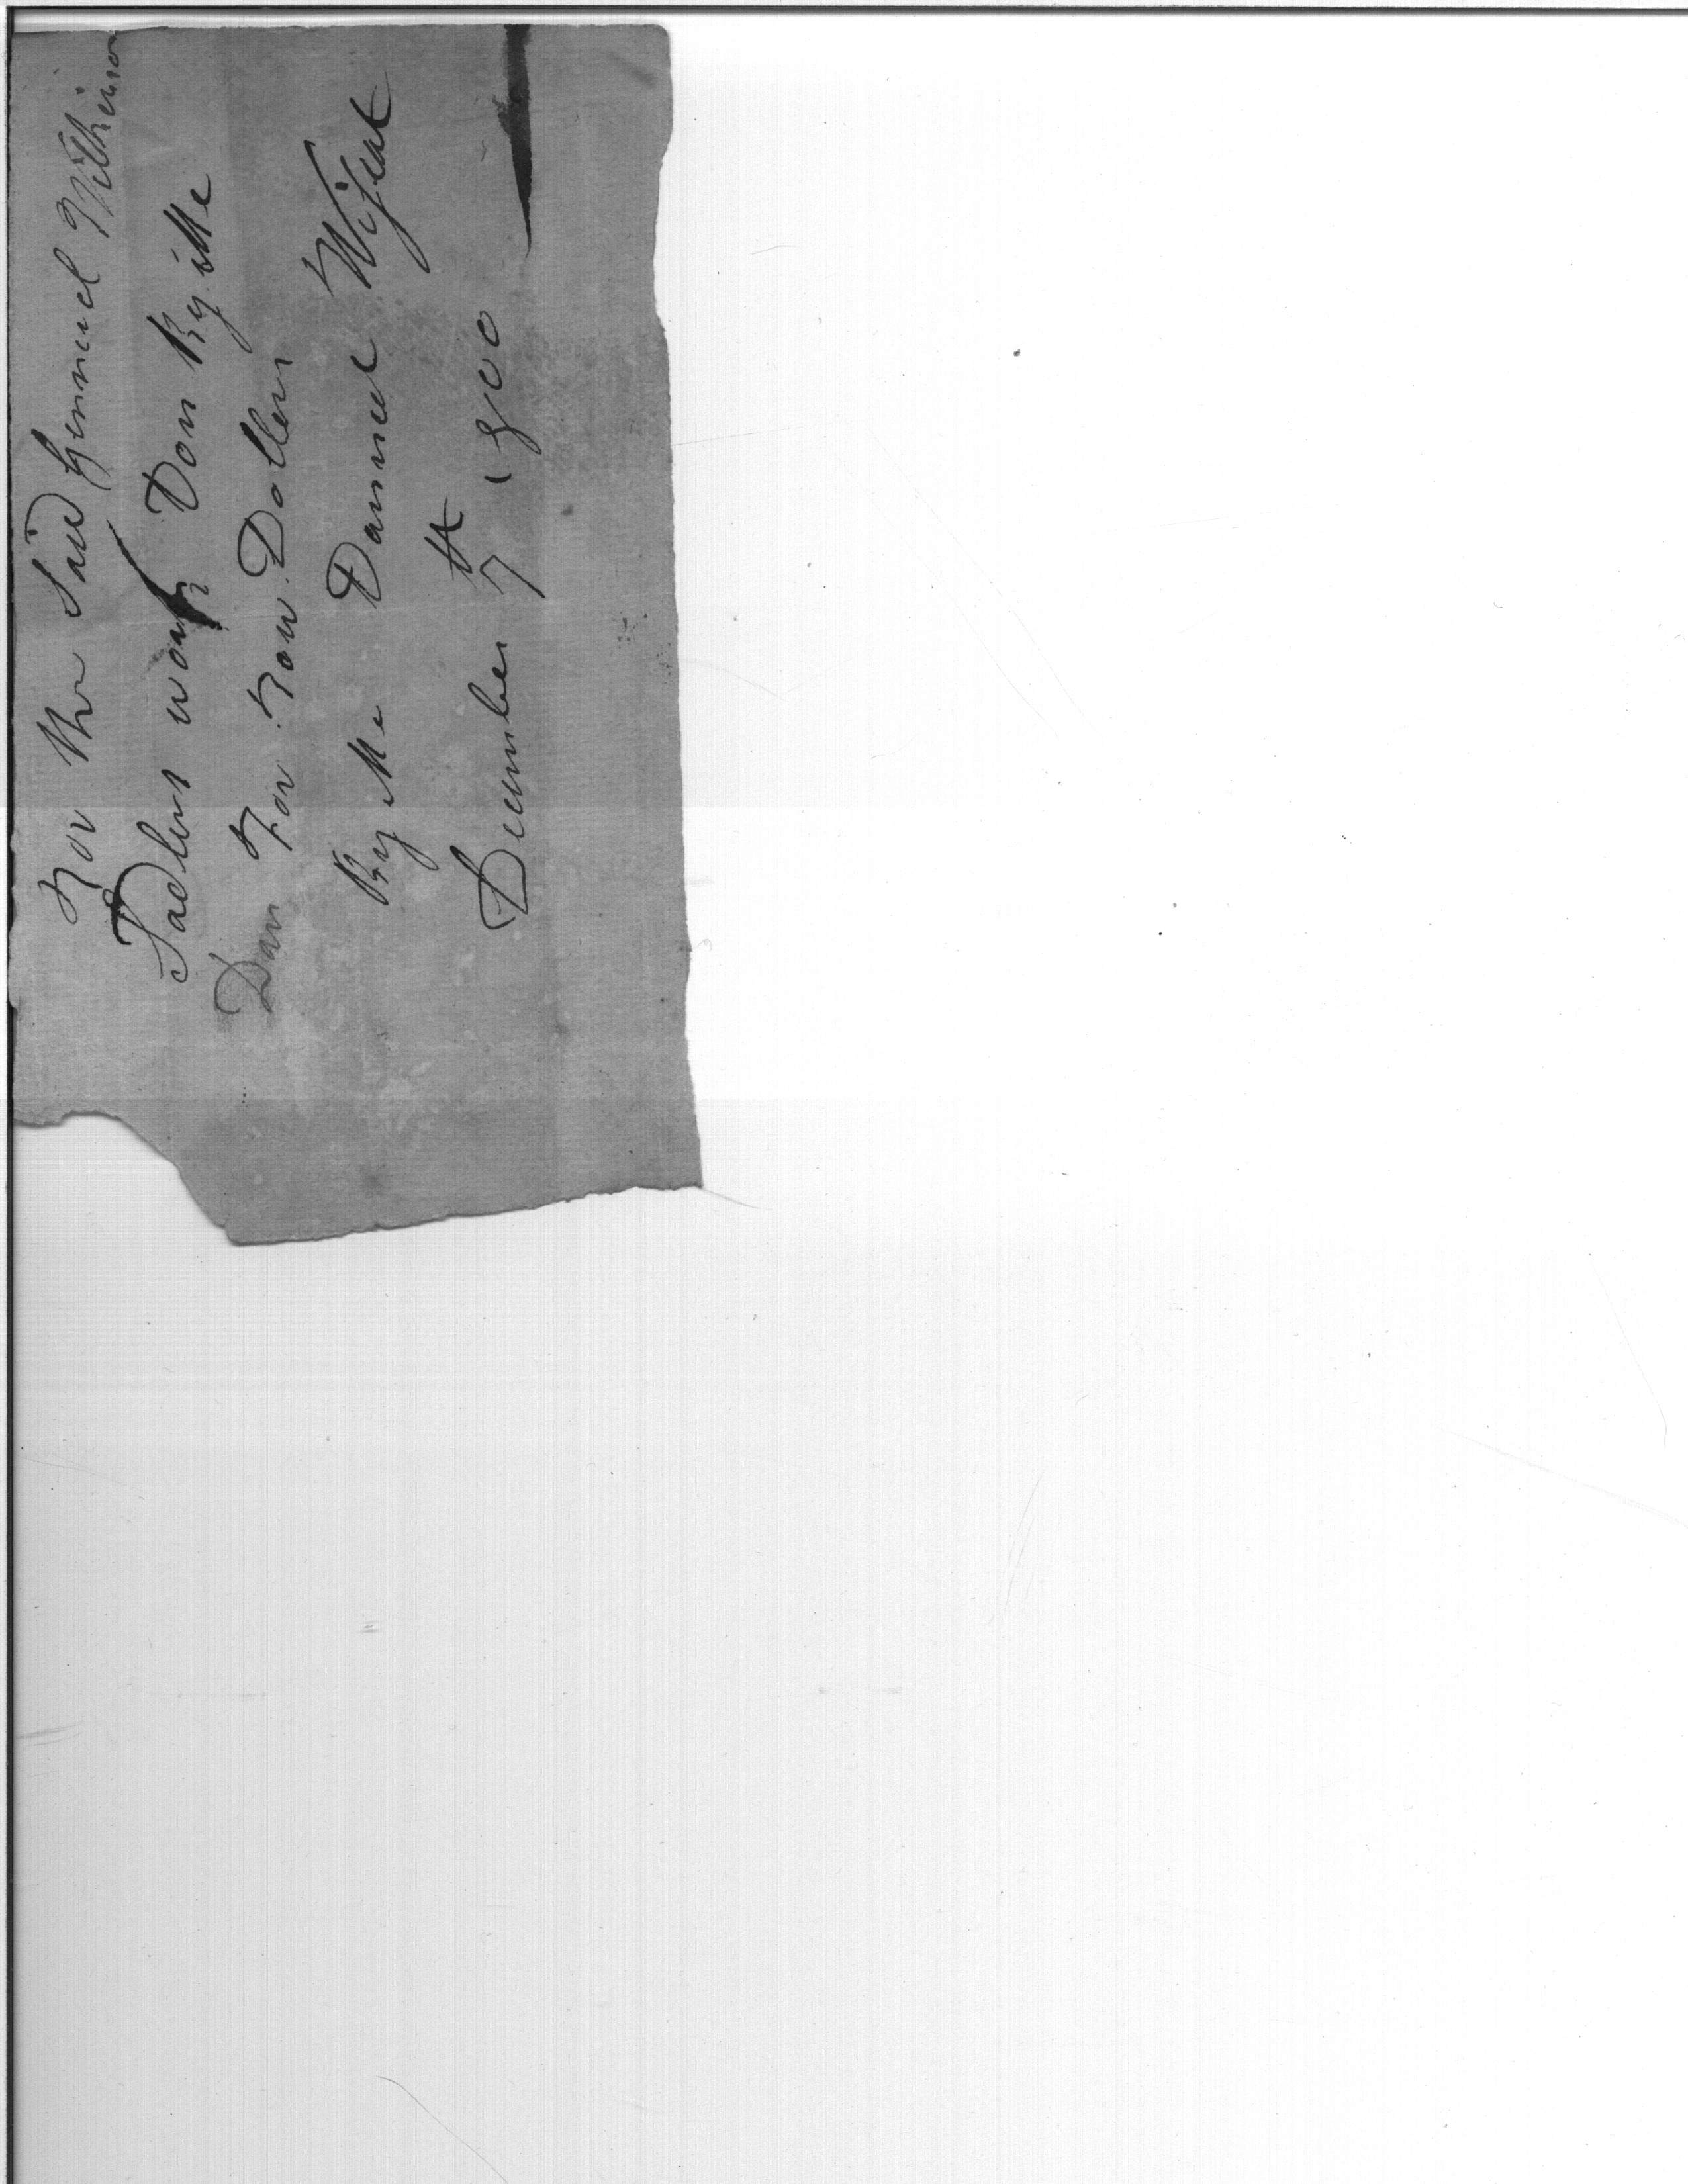 For the Said Hemmuel Wilkinson
Sadlers work Don By Me
Dan For Four Dollers
By Me Danniel Wifeat
December 7th 1800